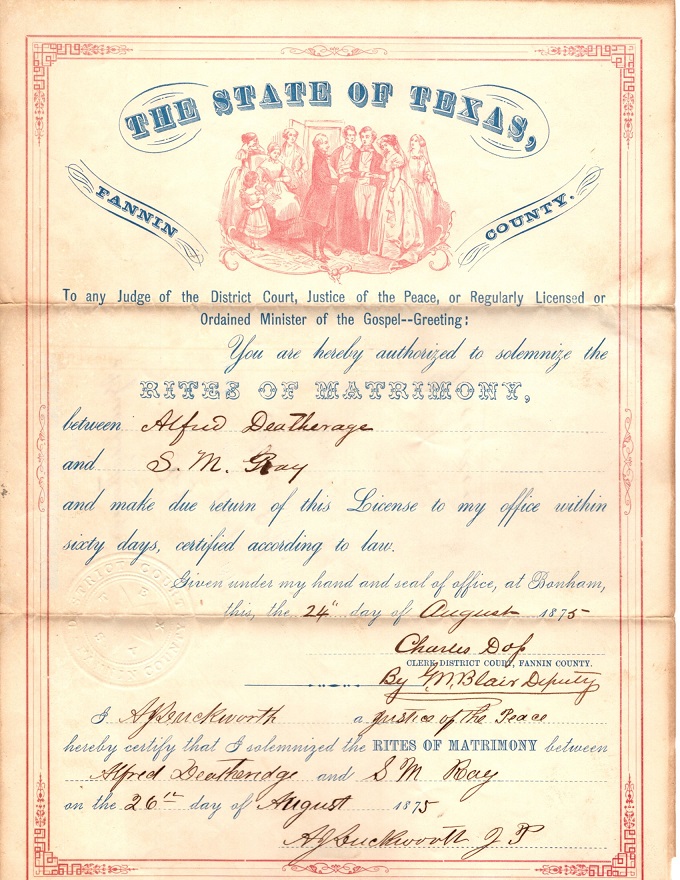 THE STATE OF TEXAS,
FANNIN COUNTY.
To any Judge of the District Court, Justice of the Peace, or Regularly Licensed or
Ordained Minister of the Gospel--Greeting:
You are hereby authorized to solemnize the
RITES OF MATRIMONY,
between Alfred Deatherage
and S. M. Ray
and make due return of this License to my office within
sixty days, certified according to law.
Given under my hand and seal of office, at Bonham,
this, the 24" day of August 1875
Charles
CLERK DISTRICT COURT, FANNIN COUNTY.
By G. M. Blair Deputy
I, A J Duckworth a Justice of the Peace
hereby certify that I solemnized the RITES OF MATRIMONY between
Alfred Deatheridge and S M Ray
on the 26th day of August 1875
A J Duckworth J P